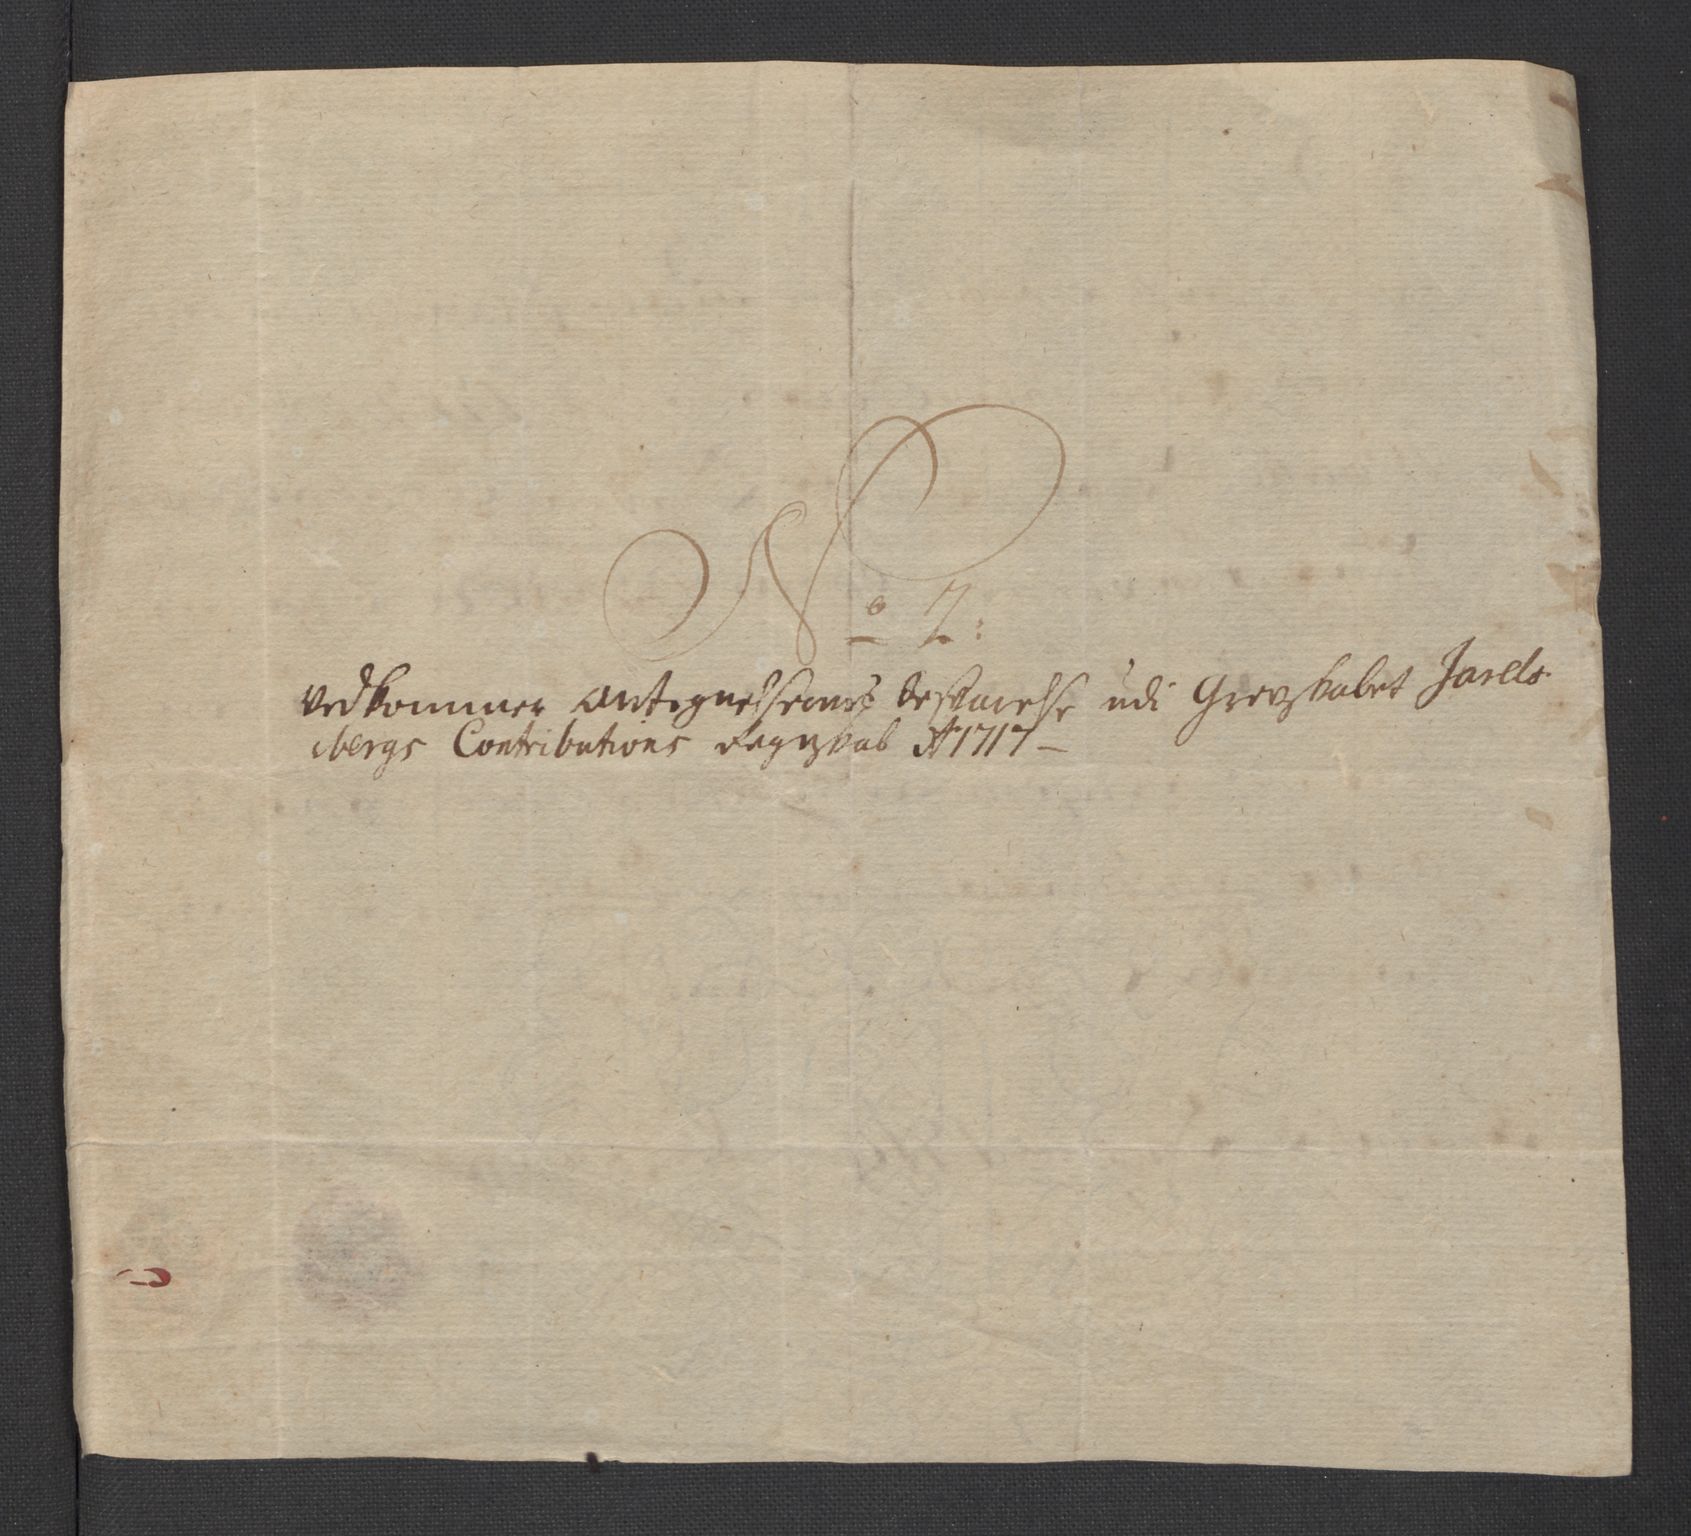 No 2:
Vedkommer Antegnelsernes besvarelse udi Grevskabet Jarls-
bergs Contributions Regnskab Ao 1717 –